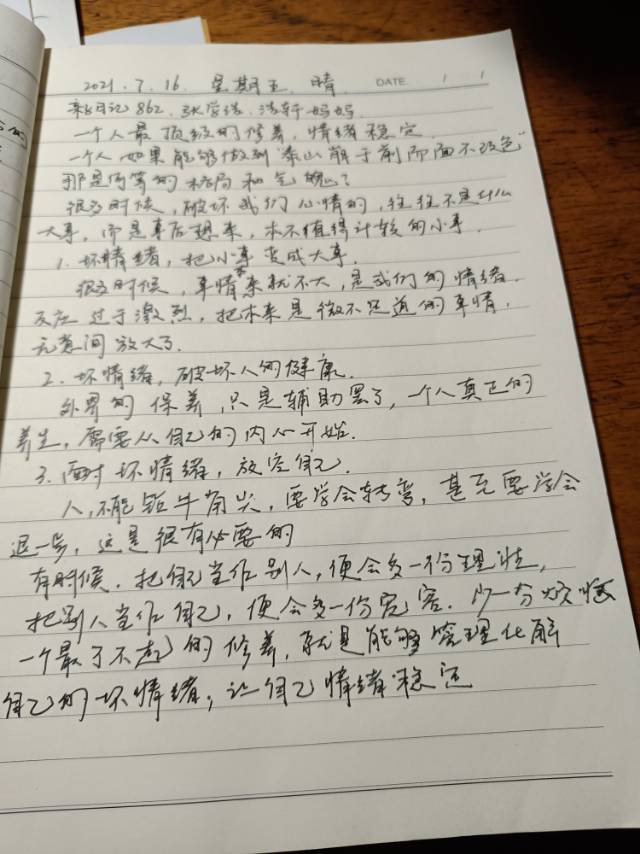 2021.7.16. 星期五 晴. DATE / /
亲子日记862. 张学浩. 浩轩妈妈.
一个人最顶级的修养, 情绪稳定.
一个人如果能够做到"泰山崩于前而面不改色"
那是何等的格局和气魄?
很多时候, 破坏我们心情的, 往往不是什么
大事, 而是事后想来, 本不值得计较的小事.
1. 坏情绪, 把小事变成大事.
很多时候, 事情本来就不大, 是我们的情绪.
反应过于激烈, 把本来是微不足道的事情,
无意间放大了.
2. 坏情绪, 破坏人的健康.
外界的保养, 只是辅助罢了, 一个人真正的
养生, 需要从自己的内心开始.
3. 面对坏情绪, 放空自己.
人, 不能钻牛角尖, 要学会转弯, 甚至要学会
退一步, 这是很有必要的
有时候. 把自己当作别人, 便会多一份理性,
把别人当作自己, 便会多一份宽容. 少一分烦恼
一个最了不起的修养, 就是能够管理化解
自己的坏情绪, 让自己情绪稳定
的